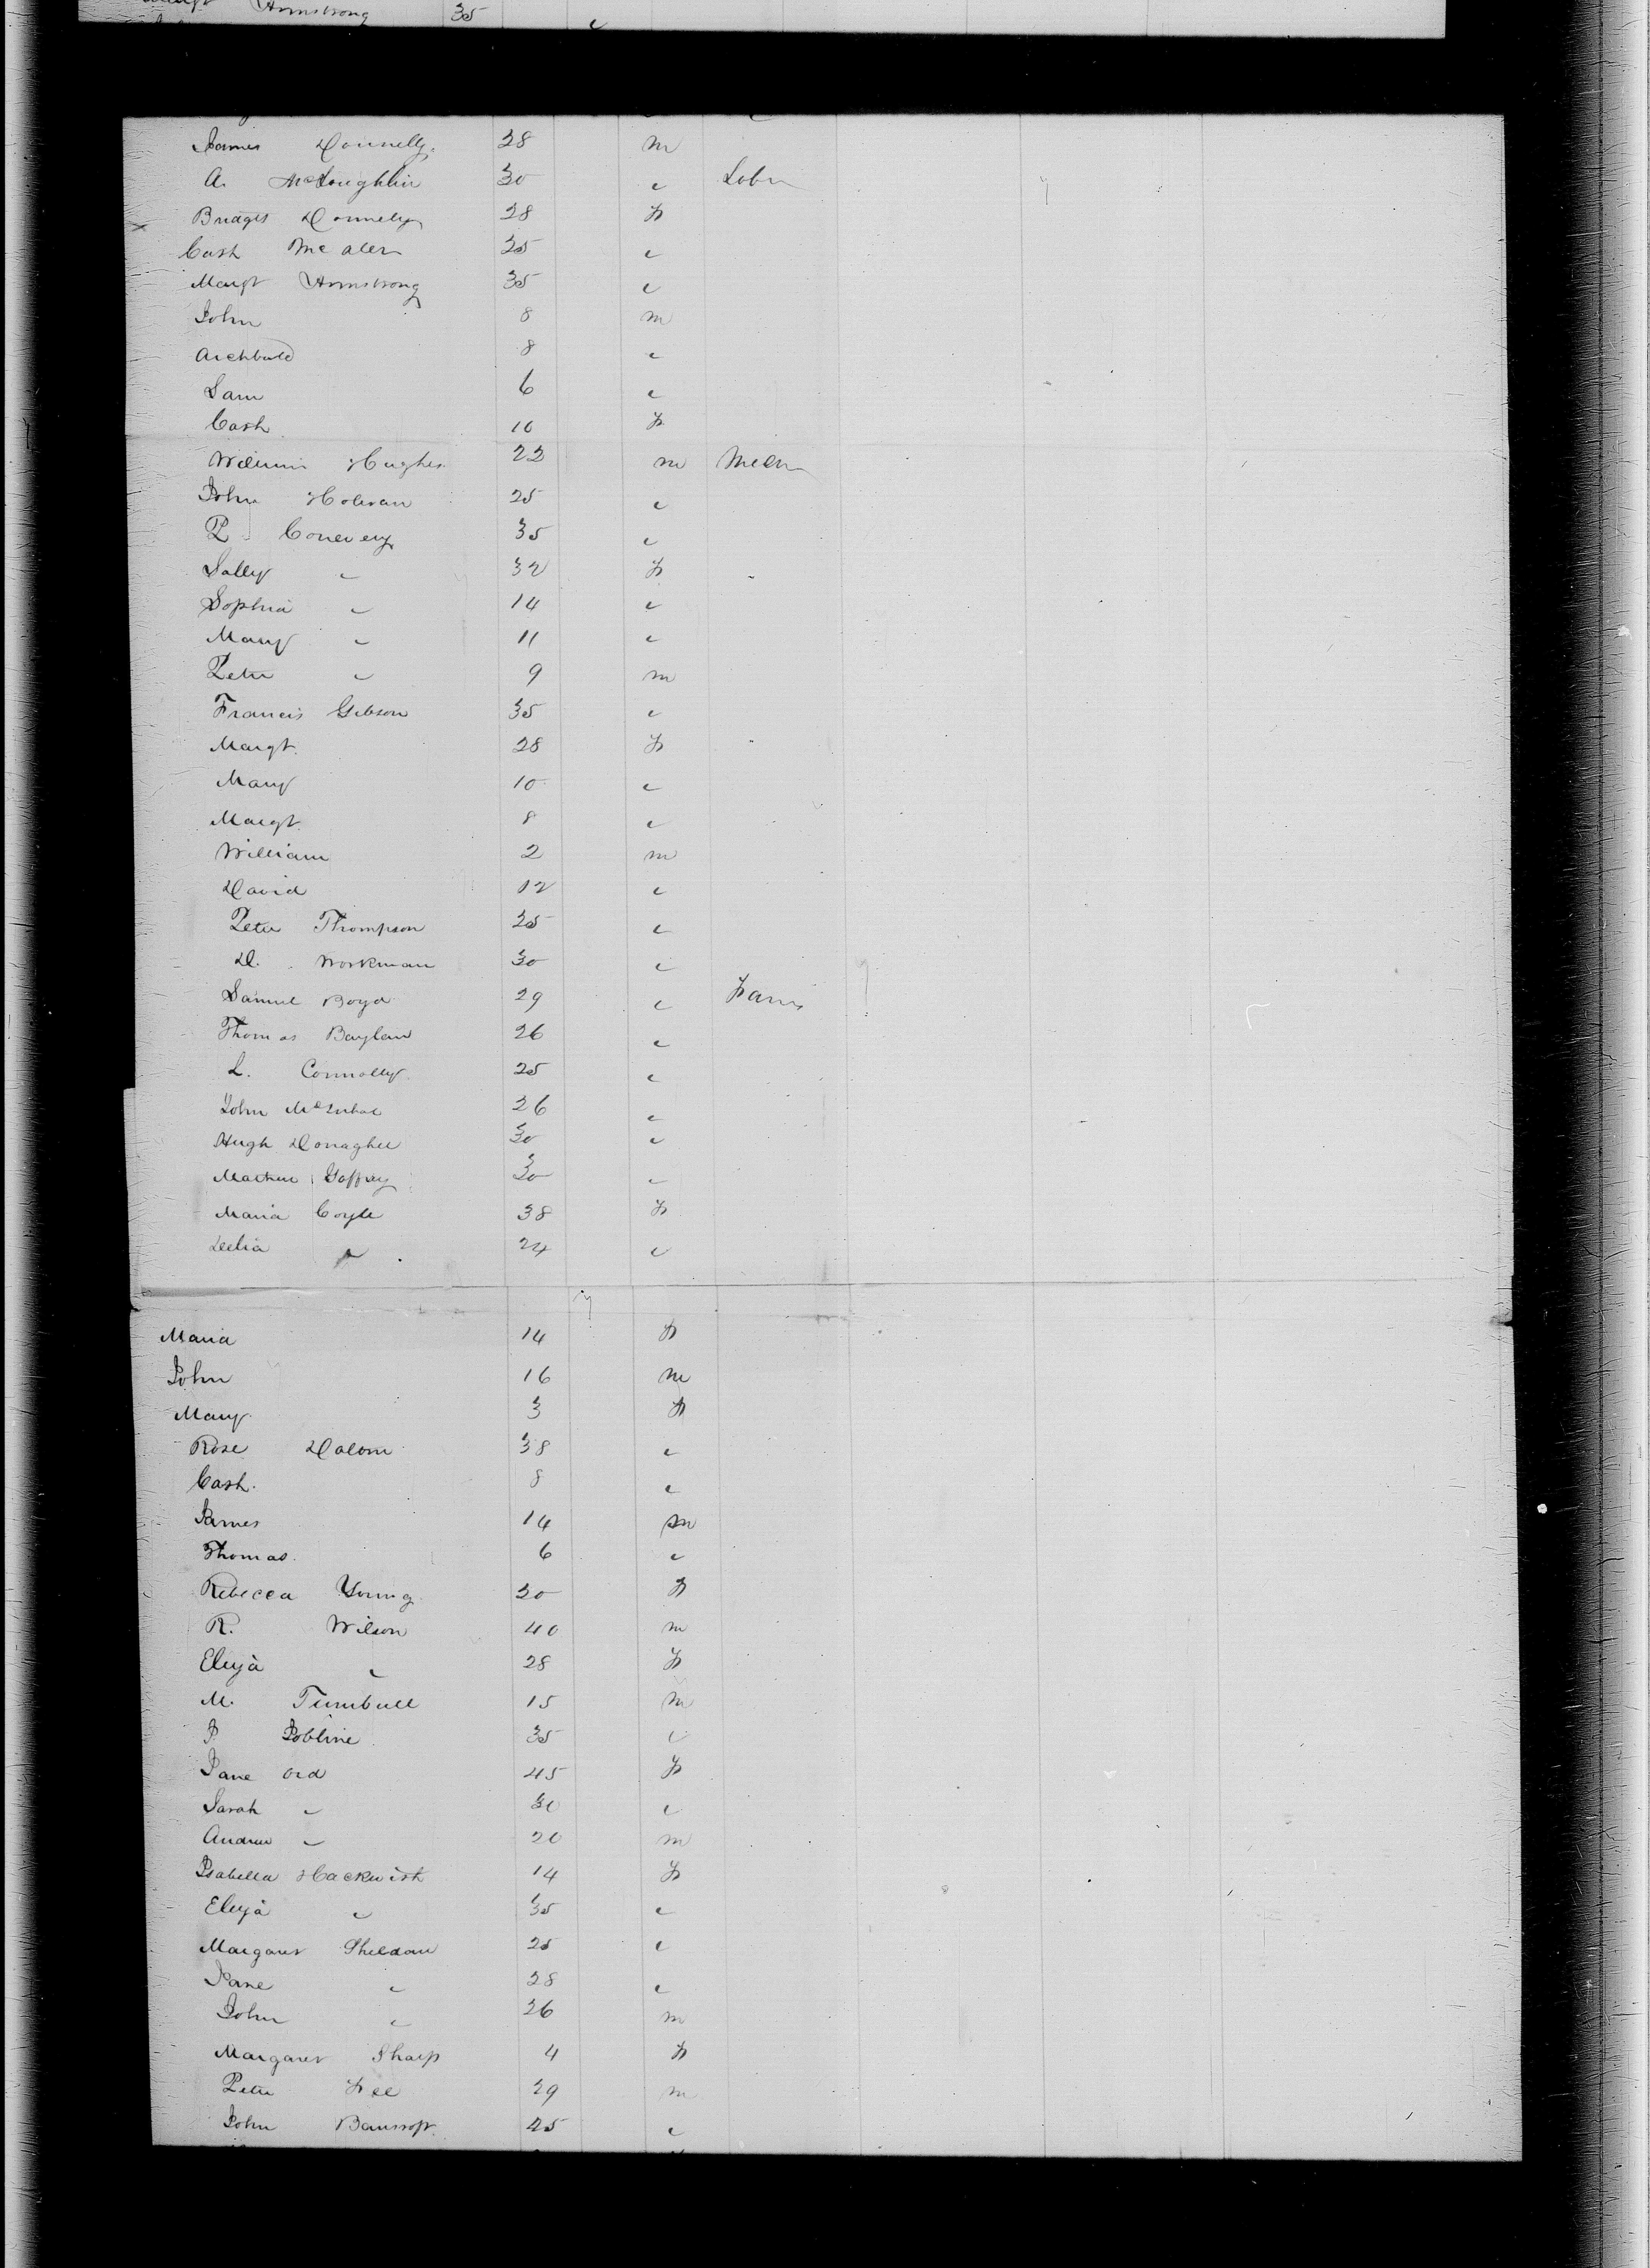 Armstrong 35 "
James Donnelly 28 m
A. McLoughlin 30 " Labr
Bridget Donnelly 28 f
Cath McAler 25 "
Margt Armstrong 35 "
John 8 m
Archbald 8 "
Sam 6 "
Cath 10 f
William Hughes 22 m Mechn
John Holeran 25 "
P. Convery 35 "
Sally " 32 f
Sophia " 14 "
Mary " 11 "
Peter " 9 m
Francis Gibson 35 "
Margt. 28 f
Mary 10 "
Margt. 8 "
William 2 m
David 12 "
Peter Thompson 25 "
D. Workman 30 "
Samuel Boyd 29 " Farmr
Thomas Baylan 26 "
L. Connolly 25 "
John 26 "
Hugh Donaghee 30 "
Mathew Gaffney 30 "
Maria Coyle 38 f
Delia " 24 "
Maria 14 f
John 16 m
Mary 3 f
Rose 38 "
Cath. 8 "
James 14 m
Thomas 6 "
Rebecca Young 20 f
R. Wilson 40 m
Eliza " 28 f
M. Turnbull 15 m
J. Jobline 35 "
Jane Ord 45 f
Sarah " 30 "
Andrew " 20 m
Isabella 14 f
Eliza " 35 "
Margaret Sheldon 25 "
Jane " 28 "
John " 26 m
Margaret Sharp 4 f
Peter Fee 29 m
John 25 "